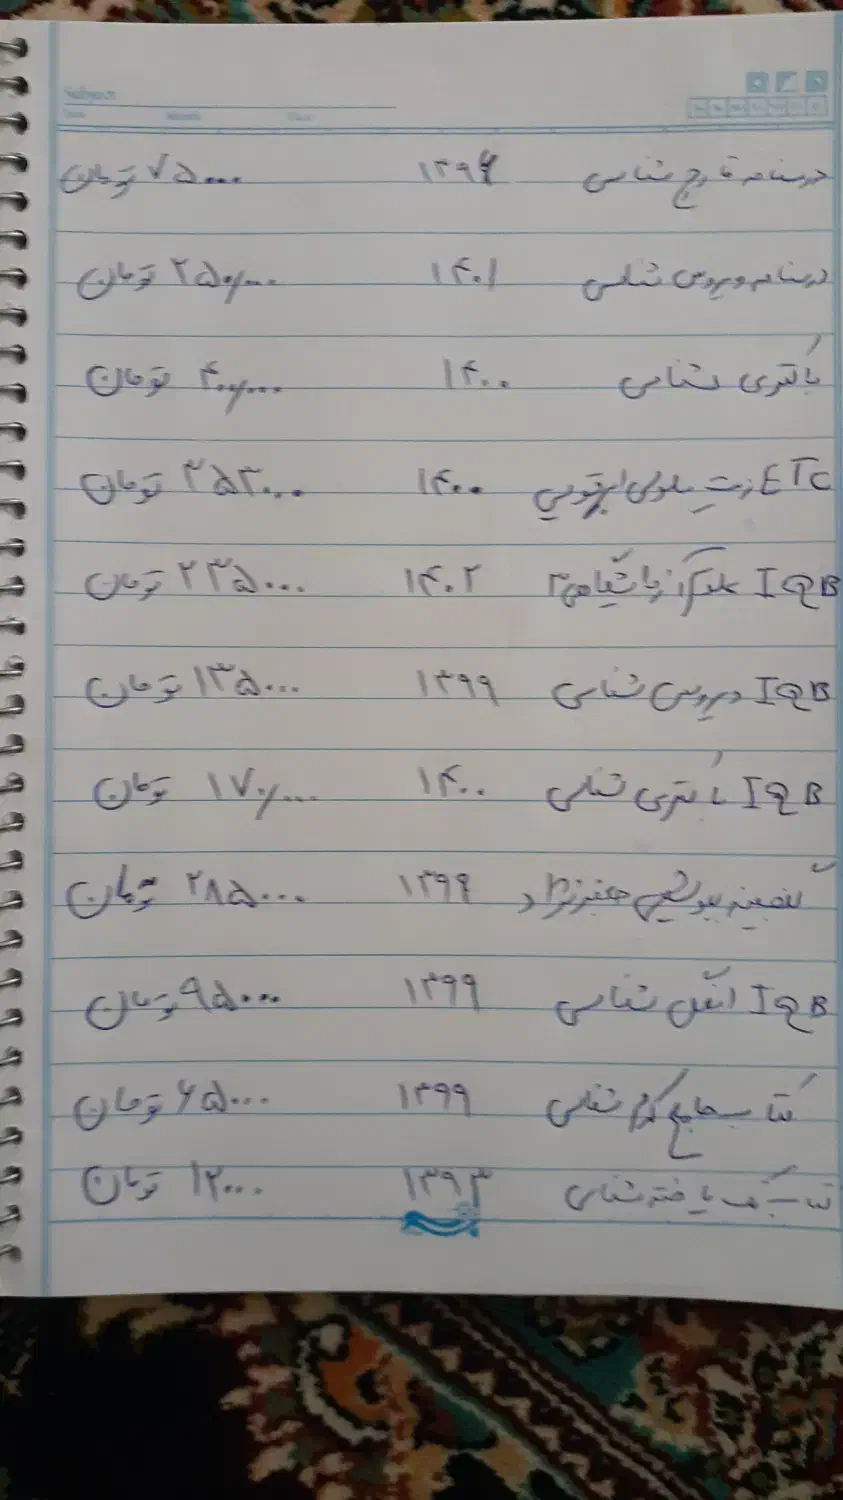 درسنامه قارچ شناسی ۱۳۹۶ ۷۵۰۰۰ تومان
درسنامه ویروس شناسی ۱۴۰۱ ۲۵۰/۰۰۰ تومان
باکتری شناسی ۱۴۰۰ ۴۰۰/۰۰۰ تومان
ETC زیست سلولی ۱۴۰۰ ۲۵۳۰۰۰ تومان
IQB ۱۴۰۲ ۲۳۵۰۰۰ تومان
IQB ویروس شناسی ۱۳۹۹ ۱۳۵۰۰۰ تومان
IQB باکتری شناسی ۱۴۰۰ ۱۷۰/۰۰۰ تومان
گنجینه بیوشیمی جعفرنژاد ۱۳۹۹ ۲۸۵۰۰۰ تومان
IQB انگل شناسی ۱۳۹۹ ۹۵۰۰۰ تومان
کتاب جامع کرم شناسی ۱۳۹۹ ۶۵۰۰۰ تومان
تک یاخته شناسی ۱۳۹۳ ۱۲۰۰۰ تومان